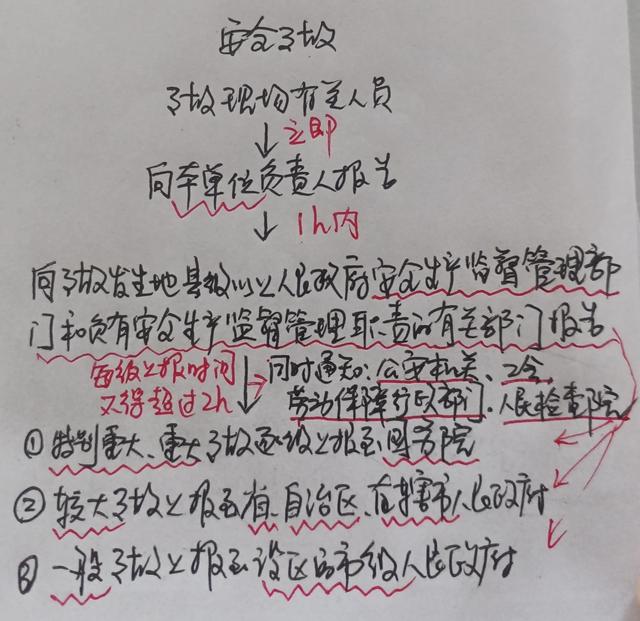 安全事故
事故现场有关人员
立即
向本单位负责人报告
1h内
向事故发生地县级以上人民政府安全生产监督管理部
门和负有安全生产监督管理职责的有关部门报告
每级上报时间 同时通知:公安机关、工会、
不得超过2h 劳动保障行政部门、人民检察院
①特别重大、重大事故逐级上报至国务院
②较大事故上报至省、自治区、直辖市人民政府
③一般事故上报至设区的市级人民政府